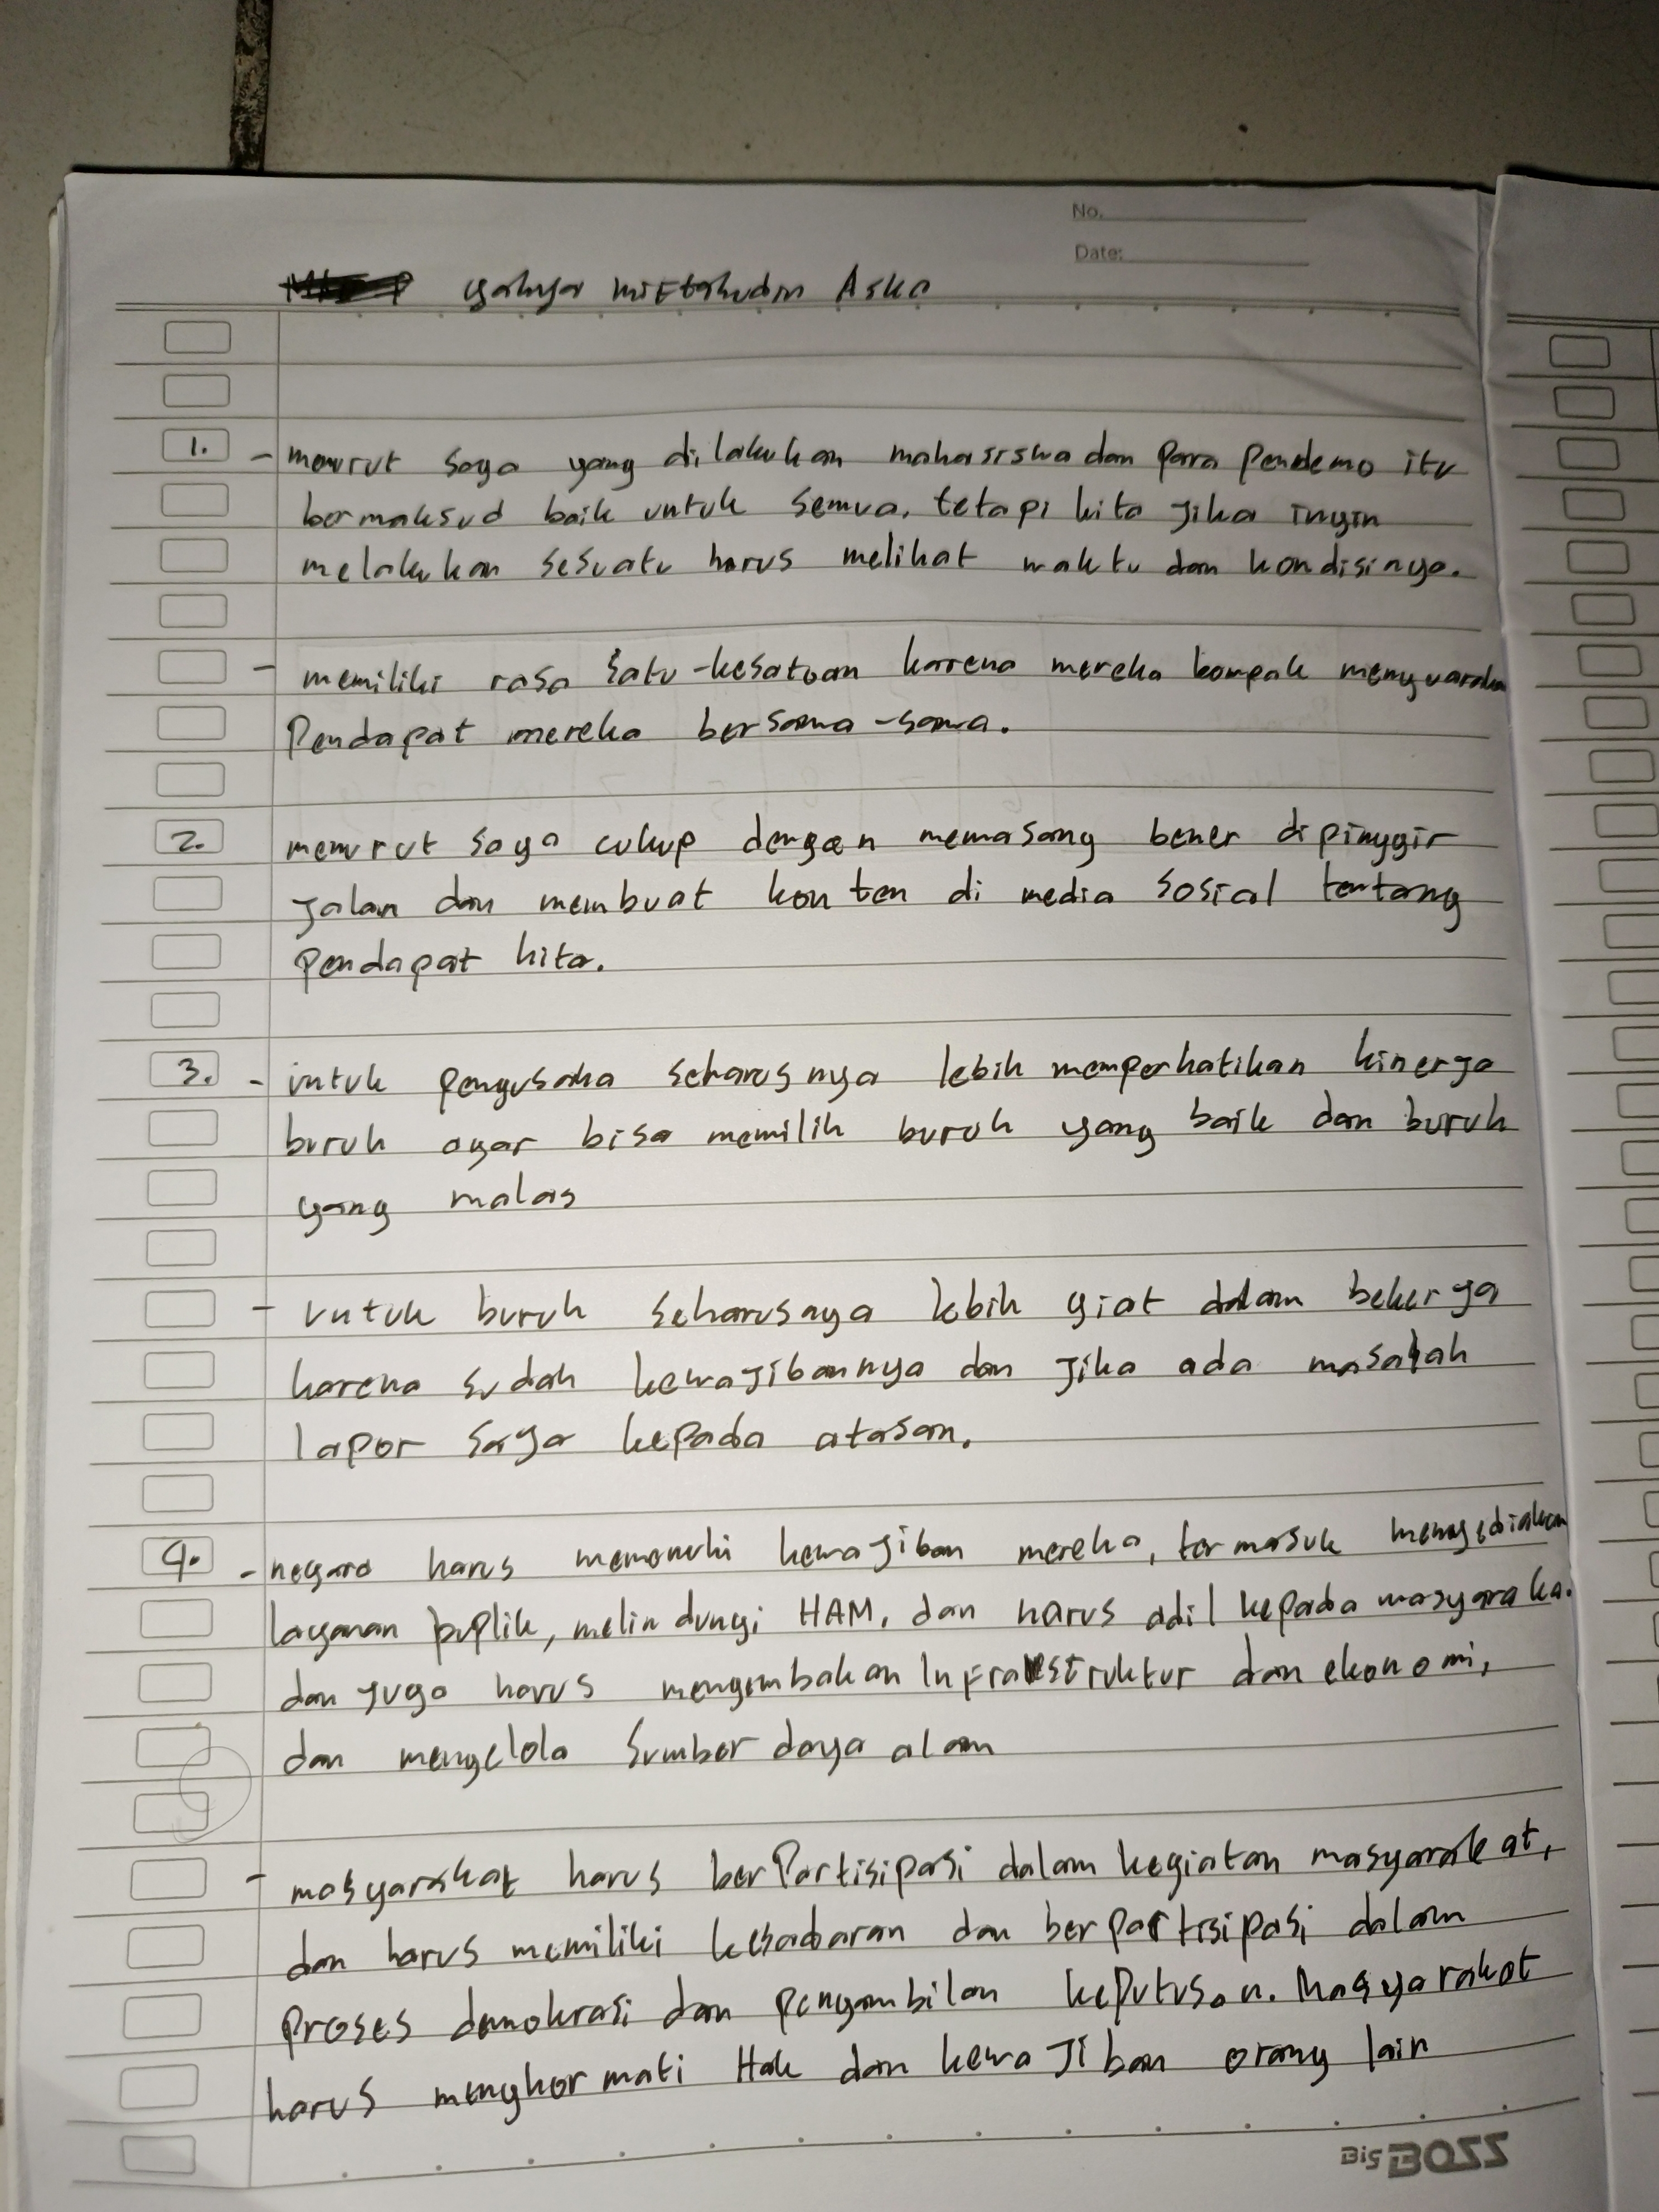 No.
Date:
yahya miftahudin Aska
1. - menurut saya yang dilakukan mahasiswa dan para pendemo itu
bermaksud baik untuk semua, tetapi kita jika ingin
melakukan sesuatu harus melihat waktu dan kondisinya.
- memiliki rasa satu-kesatuan karena mereka kompak menyuarakan
Pendapat mereka bersama-sama.
2. menurut saya cukup dengan memasang bener dipinggir
jalan dan membuat konten di media sosial tentang
pendapat kita.
3. - untuk pengusaha seharusnya lebih memperhatikan kinerja
buruh agar bisa memilih buruh yang baik dan buruh
yang malas
- untuk buruh seharusnya lebih giat dalam bekerja
karena sudah kewajibannya dan jika ada masalah
lapor saja kepada atasan.
4. - negara harus memenuhi kewajiban mereka, termasuk menyediakan
layanan puplik, melindungi HAM, dan harus adil kepada masyaraka.
dan juga harus mengembakan Infrakstruktur dan ekonomi,
dan mengelola sumber daya alam
- masyarakat harus berPartisipasi dalam kegiatan masyarakat,
dan harus memiliki kesadaran dan berpartisipasi dalam
proses demokrasi dan pengambilan keputusan. Masyarakat
harus menghormati Hak dan kewajiban orang lain
Big BOSS